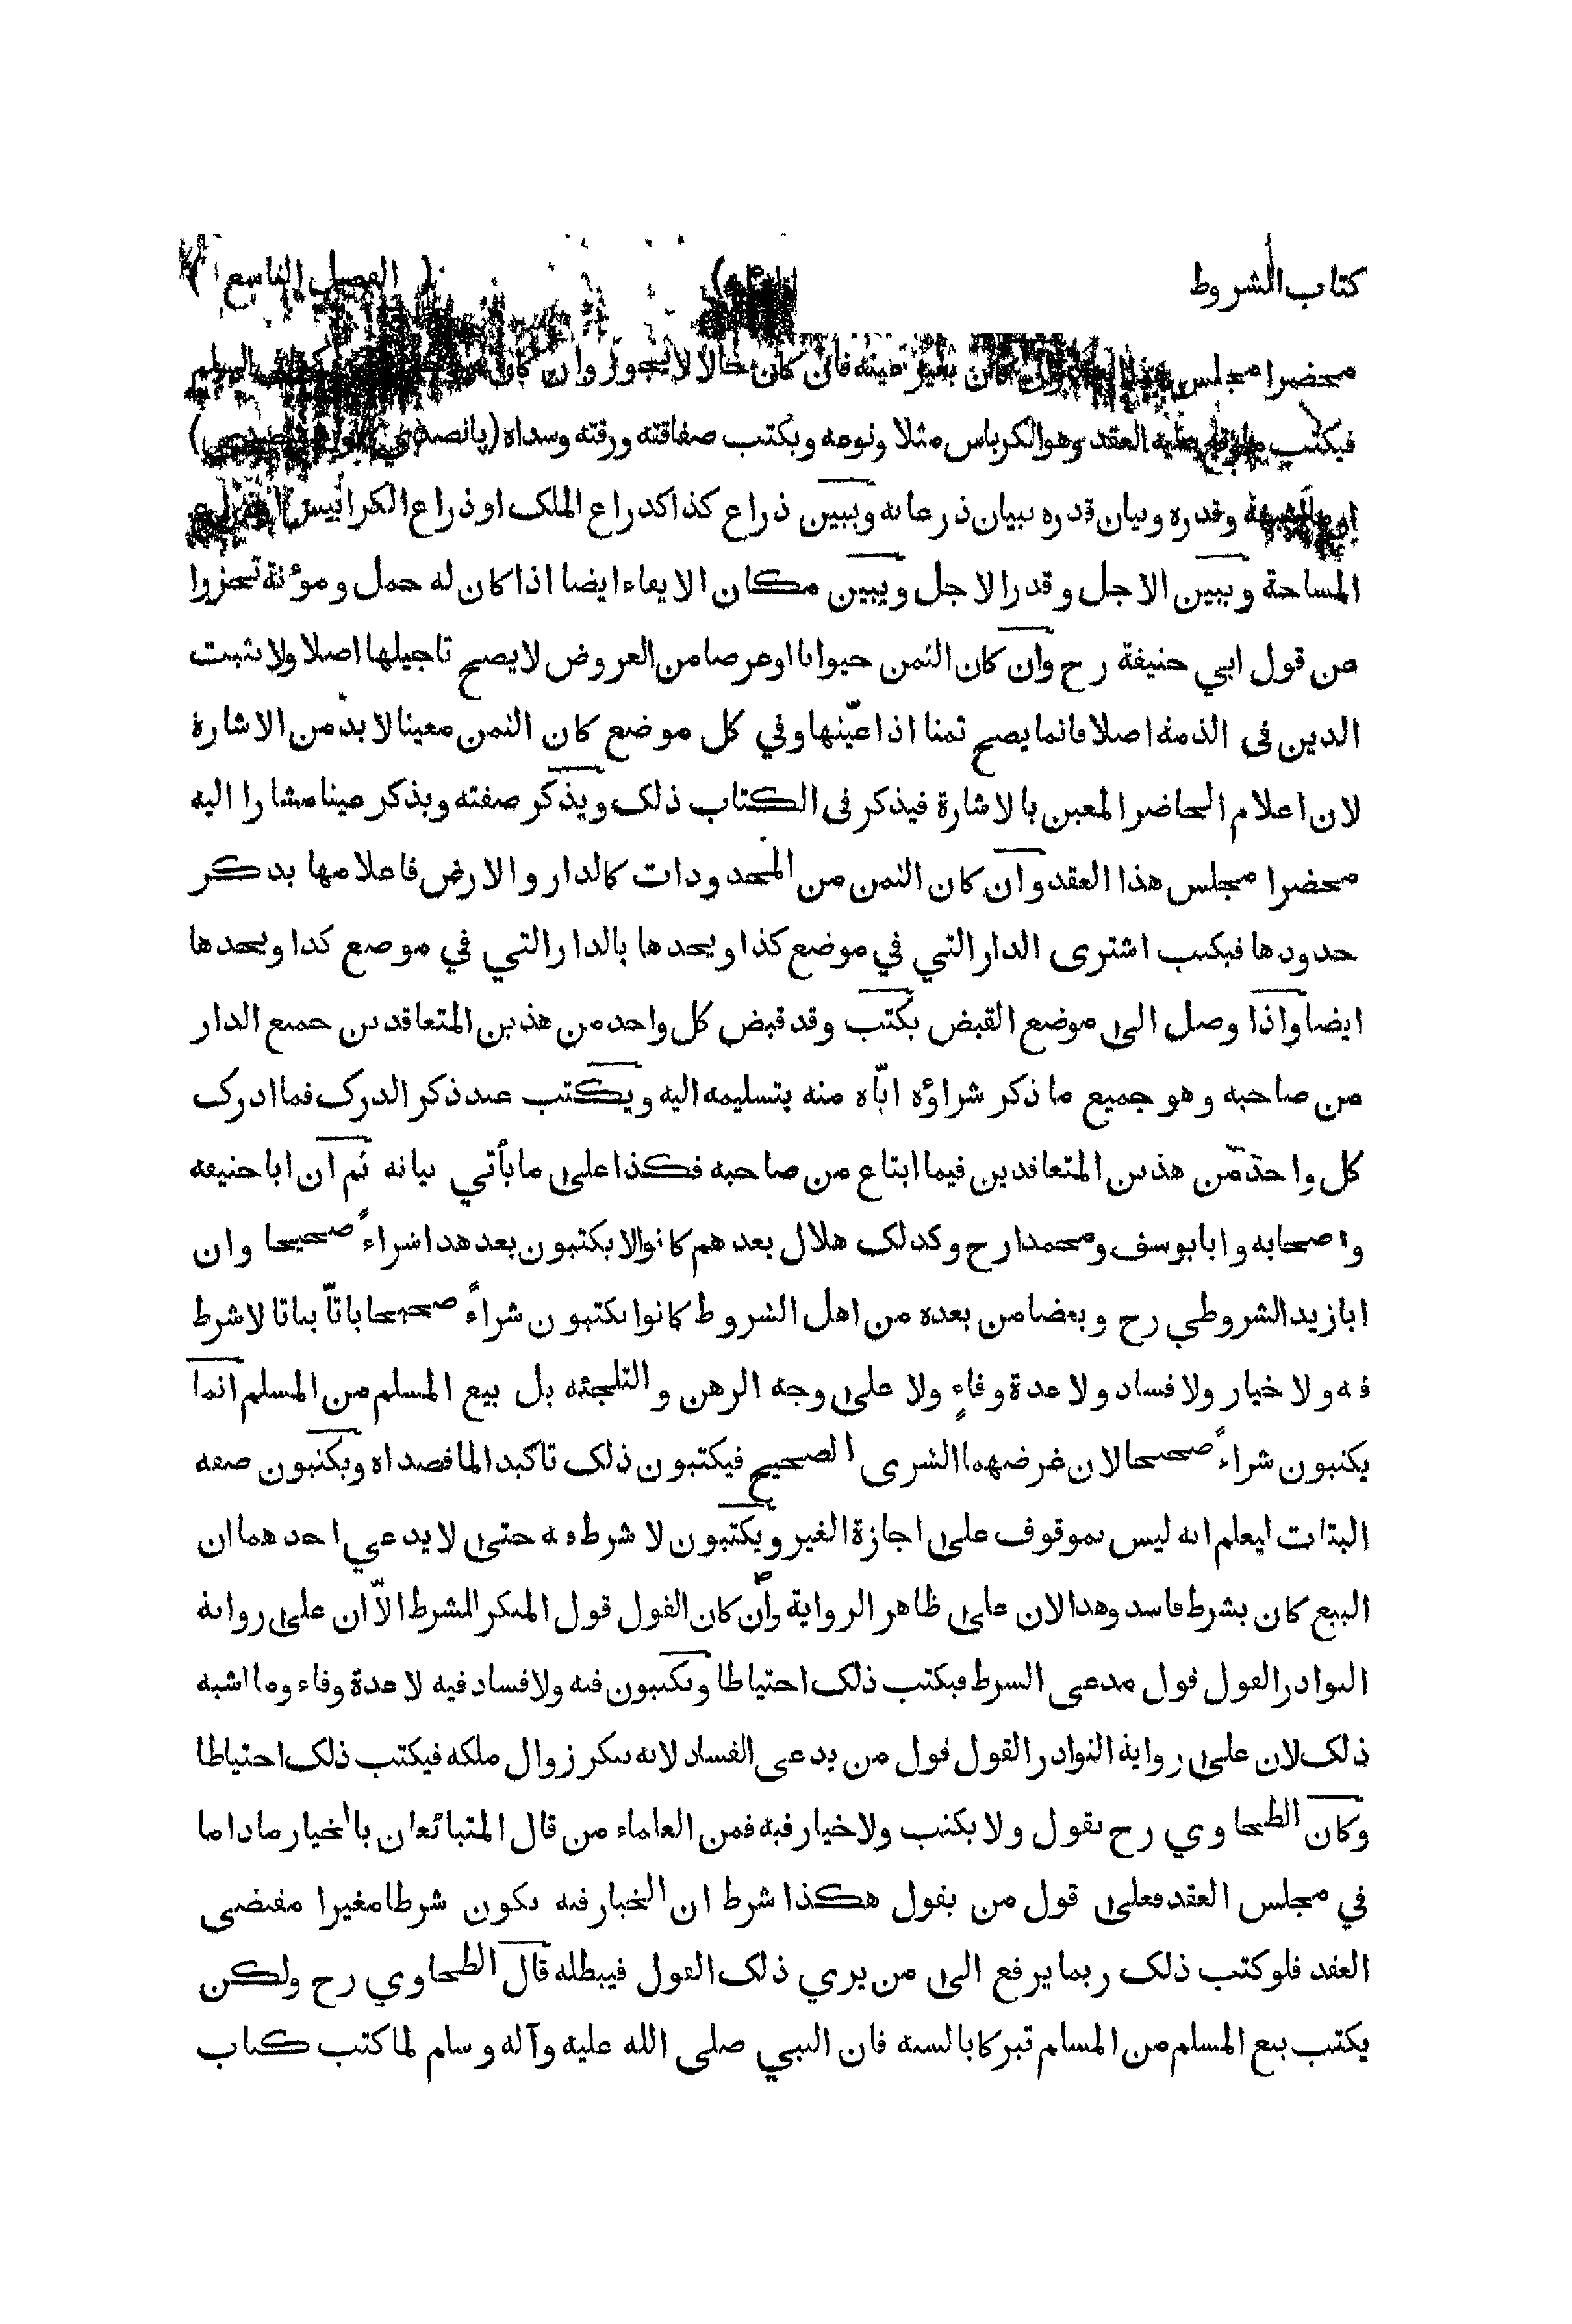 كتاب الشروط ( الفصل التاسع )
محضرا مجلس بغير عينه فان كان حالا لا يجوز وان كان
فيكتب العقد وهو الكرباس مثلا ونوعه ويكتب صفاقته ورقته وسداه
وقدره وبيان قدره ببيان ذرعانه ويبين ذراع كذا كذراع الملك او ذراع الكرابيس
المساحة ويبين الاجل وقدر الاجل ويبين مكان الايفاء ايضا اذا كان له حمل ومؤنة تحرزا
من قول ابي حنيفة رح وان كان الثمن حيوانا او عرضا من العروض لا يصح تاجيلها اصلا ولا يثبت
الدين في الذمة اصلا فانما يصح ثمنا اذا عيّنها وفي كل موضع كان الثمن معينا لا بد من الاشارة
لان اعلام الحاضر المعين بالاشارة فيذكر في الكتاب ذلك ويذكر صفته ويذكر عينا مشارا اليه
محضرا مجلس هذا العقد وان كان الثمن من المحدودات كالدار والارض فاعلامها بذكر
حدودها فيكتب اشترى الدار التي في موضع كذا ويحدها بالدار التي في موضع كذا ويحدها
ايضا واذا وصل الى موضع القبض يكتب وقد قبض كل واحد من هذين المتعاقدين جميع الدار
من صاحبه وهو جميع ما ذكر شراؤه ايّاه منه بتسليمه اليه ويكتب عند ذكر الدرك فما ادرك
كل واحد من هذين المتعاقدين فيما ابتاع من صاحبه فكذا على ما يأتي بيانه ثم ان ابا حنيفه
واصحابه وابا يوسف ومحمدا رح وكذلك هلال بعدهم كانوا لا يكتبون بعد هذا شراءً صحيحا وان
ابا زيد الشروطي رح وبعضا من بعده من اهل الشروط كانوا يكتبون شراءً صحيحا باتاّ بتاتا لا شرط
فيه ولا خيار ولا فساد ولا عدة وفاءٍ ولا على وجه الرهن والتلجئه بل بيع المسلم من المسلم انما
يكتبون شراءً صحيحا لان غرضهما الشرى الصحيح فيكتبون ذلك تاكيدا لما قصداه ويكتبون صفه
البتات ليعلم انه ليس بموقوف على اجازة الغير ويكتبون لا شرط فيه حتى لا يدعي احدهما ان
البيع كان بشرط فاسد وهذا لان على ظاهر الرواية وان كان القول قول المنكر للشرط الاّ ان على رواية
النوادر القول قول مدعى الشرط فيكتب ذلك احتياطا ويكتبون فيه ولا فساد فيه لا عدة وفاء وما اشبه
ذلك لان على رواية النوادر القول قول من يدعى الفساد لانه ينكر زوال ملكه فيكتب ذلك احتياطا
وكان الطحاوي رح يقول ولا يكتب ولا خيار فيه فمن العلماء من قال المتبائعان بالخيار ما داما
في مجلس العقد فعلى قول من يقول هكذا شرط ان الخيار فيه يكون شرطا مغيرا مقتضى
العقد فلو كتب ذلك ربما يرفع الى من يري ذلك القول فيبطله قال الطحاوي رح ولكن
يكتب بيع المسلم من المسلم تبركا بالسنه فان النبي صلى الله عليه وآله وسلم لما كتب كتاب